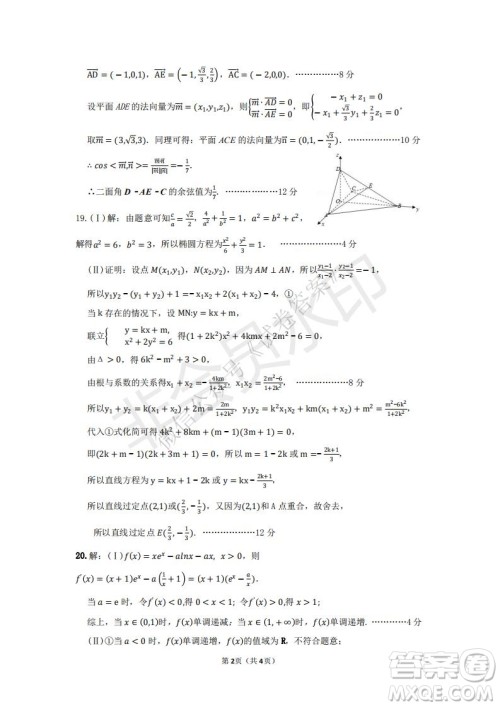 AD=(−1,0,1), AE=(−1,√3/3,2/3), AC=(−2,0,0). ……………8 分
设平面 ADE 的法向量为m=(x₁,y₁,z₁), {m·AD=0 m·AE=0, 即{−x₁+z₁=0 −x₁+√3/3y₁+2/3z₁=0,
取m=(3,√3,3). 同理可得: 平面 ACE 的法向量n=(0,1,−√3/2). …………10 分
∴cos<m,n>=m·n/|m||n|=−1/7.
∴二面角 D-AE-C 的余弦值1/7. …………12 分
19.(Ⅰ)解: 由题意可知c/a=√2/2, 4/a²+1/b²=1, a²=b²+c²,
解得a²=6, b²=3, 所以椭圆方程为x²/6+y²/3=1. ……………4 分
(Ⅱ)证明: 设点 M(x₁,y₁), N(x₂,y₂), 因为 AM⊥AN, 所以(y₁−1)/(x₁−2)·(y₂−1)/(x₂−2)=−1,
所以y₁y₂−(y₁+y₂)+1=−x₁x₂+2(x₁+x₂)−4, ①
当 k 存在的情况下, 设 MN:y=kx+m,
联立{y=kx+m, x²+2y²=6 得(1+2k²)x²+4kmx+2m²−6=0,
由 Δ>0, 得 6k²−m²+3>0,
由根与系数的关系得x₁+x₂=−4km/(1+2k²), x₁x₂=(2m²−6)/(1+2k²),
所以y₁+y₂=k(x₁+x₂)+2m=2m/(1+2k²), y₁y₂=k²x₁x₂+km(x₁+x₂)+m²=(m²−6k²)/(1+2k²),
代入①式化简可得 4k²+8km+(m−1)(3m+1)=0,
即(2k+m−1)(2k+3m+1)=0, 所以m=1−2k或m=−(2k+1)/3,
所以直线方程为y=kx+1−2k或y=kx−(2k+1)/3,
所以直线过定点(2,1)或(2/3,−1/3), 又因为(2,1)和 A 点重合, 故舍去,
所以直线过定点 E(2/3,−1/3). ……………12 分
20.解: (Ⅰ)f(x)=xeˣ−alnx−ax, x>0, 则
f′(x)=(x+1)eˣ−a(1/x+1)=(x+1)(eˣ−a/x),
当 a=e 时, 令f′(x)<0, 得 0<x<1; 令f′(x)>0, 得x>1,
综上, 当 x∈(0,1)时, f(x)单调递减, 当 x∈(1,+∞)时, f(x)单调递增. …………4 分
(Ⅱ)①当a<0时, f(x)单调递增, f(x)的值域为 R, 不符合题意;
第 2页 (共 4页)
非会员水印
微信公众号《试卷答案》
答案圈
MXQE.COM